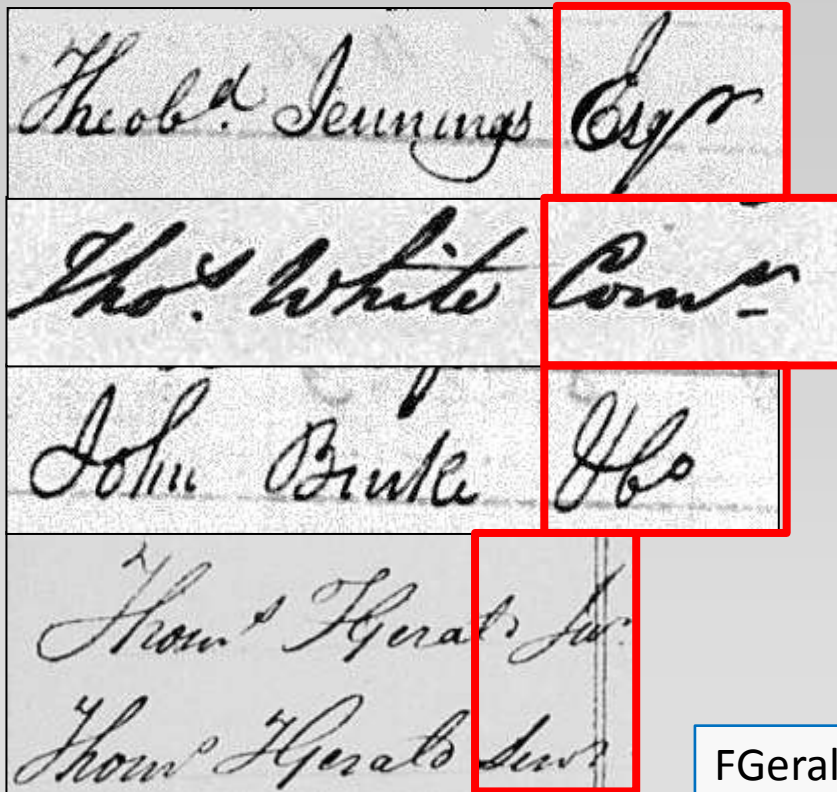 Theob.d Jennings Esqr
Thos. White Comr
John Burke
Thoms FGerald Jur
Thoms FGerald Senr
FGeral